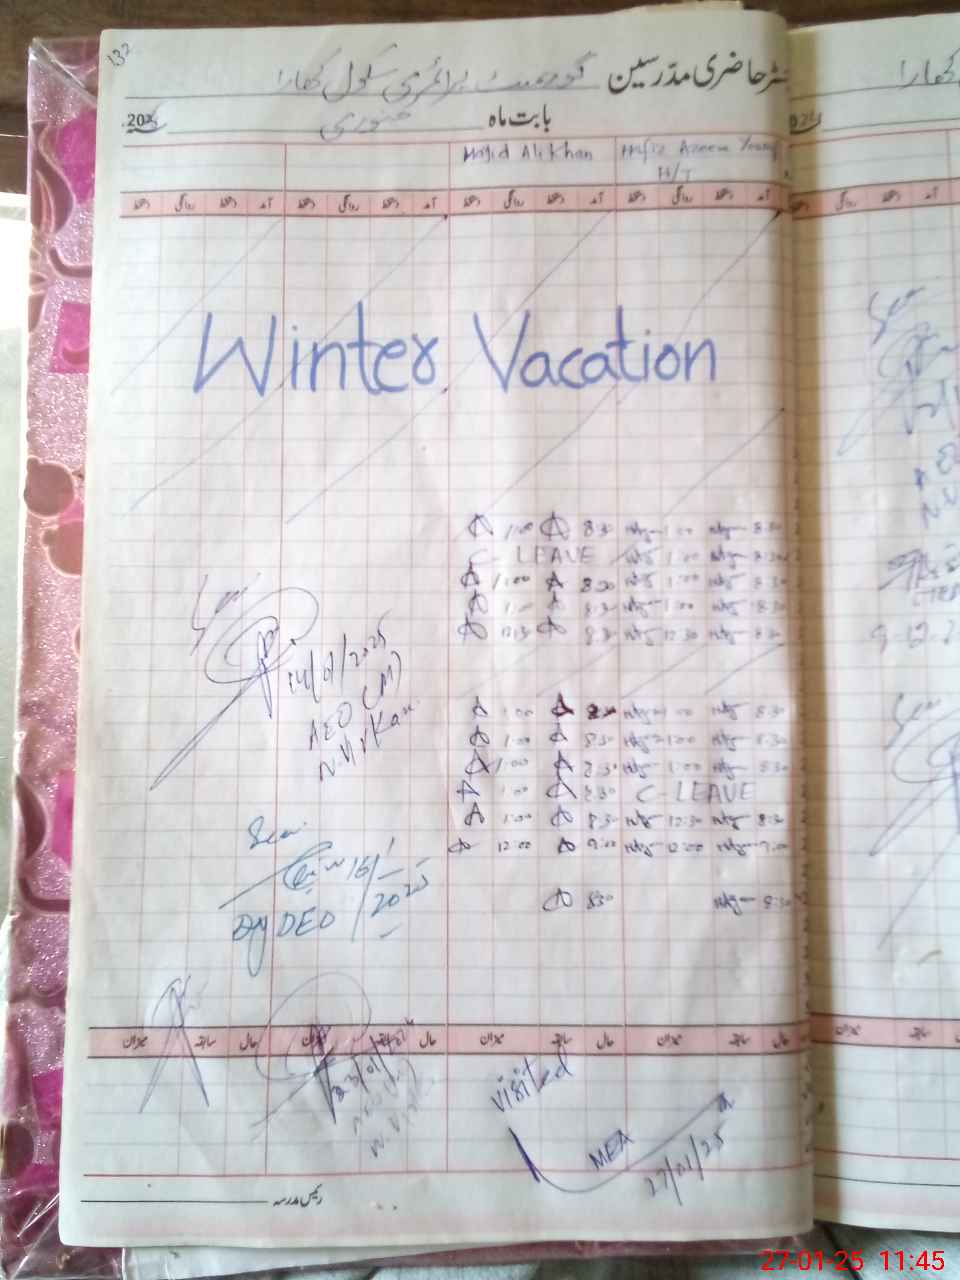 132
رجسٹر حاضری مدرسین گورنمنٹ پرائمری سکول کھارا
بابت ماہ جنوری 202
Hafiz Azeem Yousaf Majid Ali Khan
H/T
آمد دستخط روانگی دستخط آمد دستخط روانگی دستخط آمد دستخط روانگی دستخط آمد دستخط روانگی دستخط
Winter Vacation
1:00 8:30 1:00 8:30
C - LEAVE 1:00 8:30
1:00 8:30 1:00 8:30
1:00 8:30 1:00 8:30
12:30 8:30 12:30 8:30
Seen
14/01/2025
AEO (M)
N. Virkan
1:00 8:30 1:00 8:30
1:00 8:30 1:00 8:30
1:00 8:30 1:00 8:30
1:00 8:30 C - LEAVE
1:00 8:30 12:30 8:30
12:00 9:00 12:00 9:00
8:30 8:30
Seen
16/1/2025
Dy DEO
حال سابقہ میزان حال سابقہ میزان حال سابقہ میزان حال سابقہ میزان
23/01/2025
visited
MEA
27/01/25
رئیس مدرسہ
27-01-25 11:45